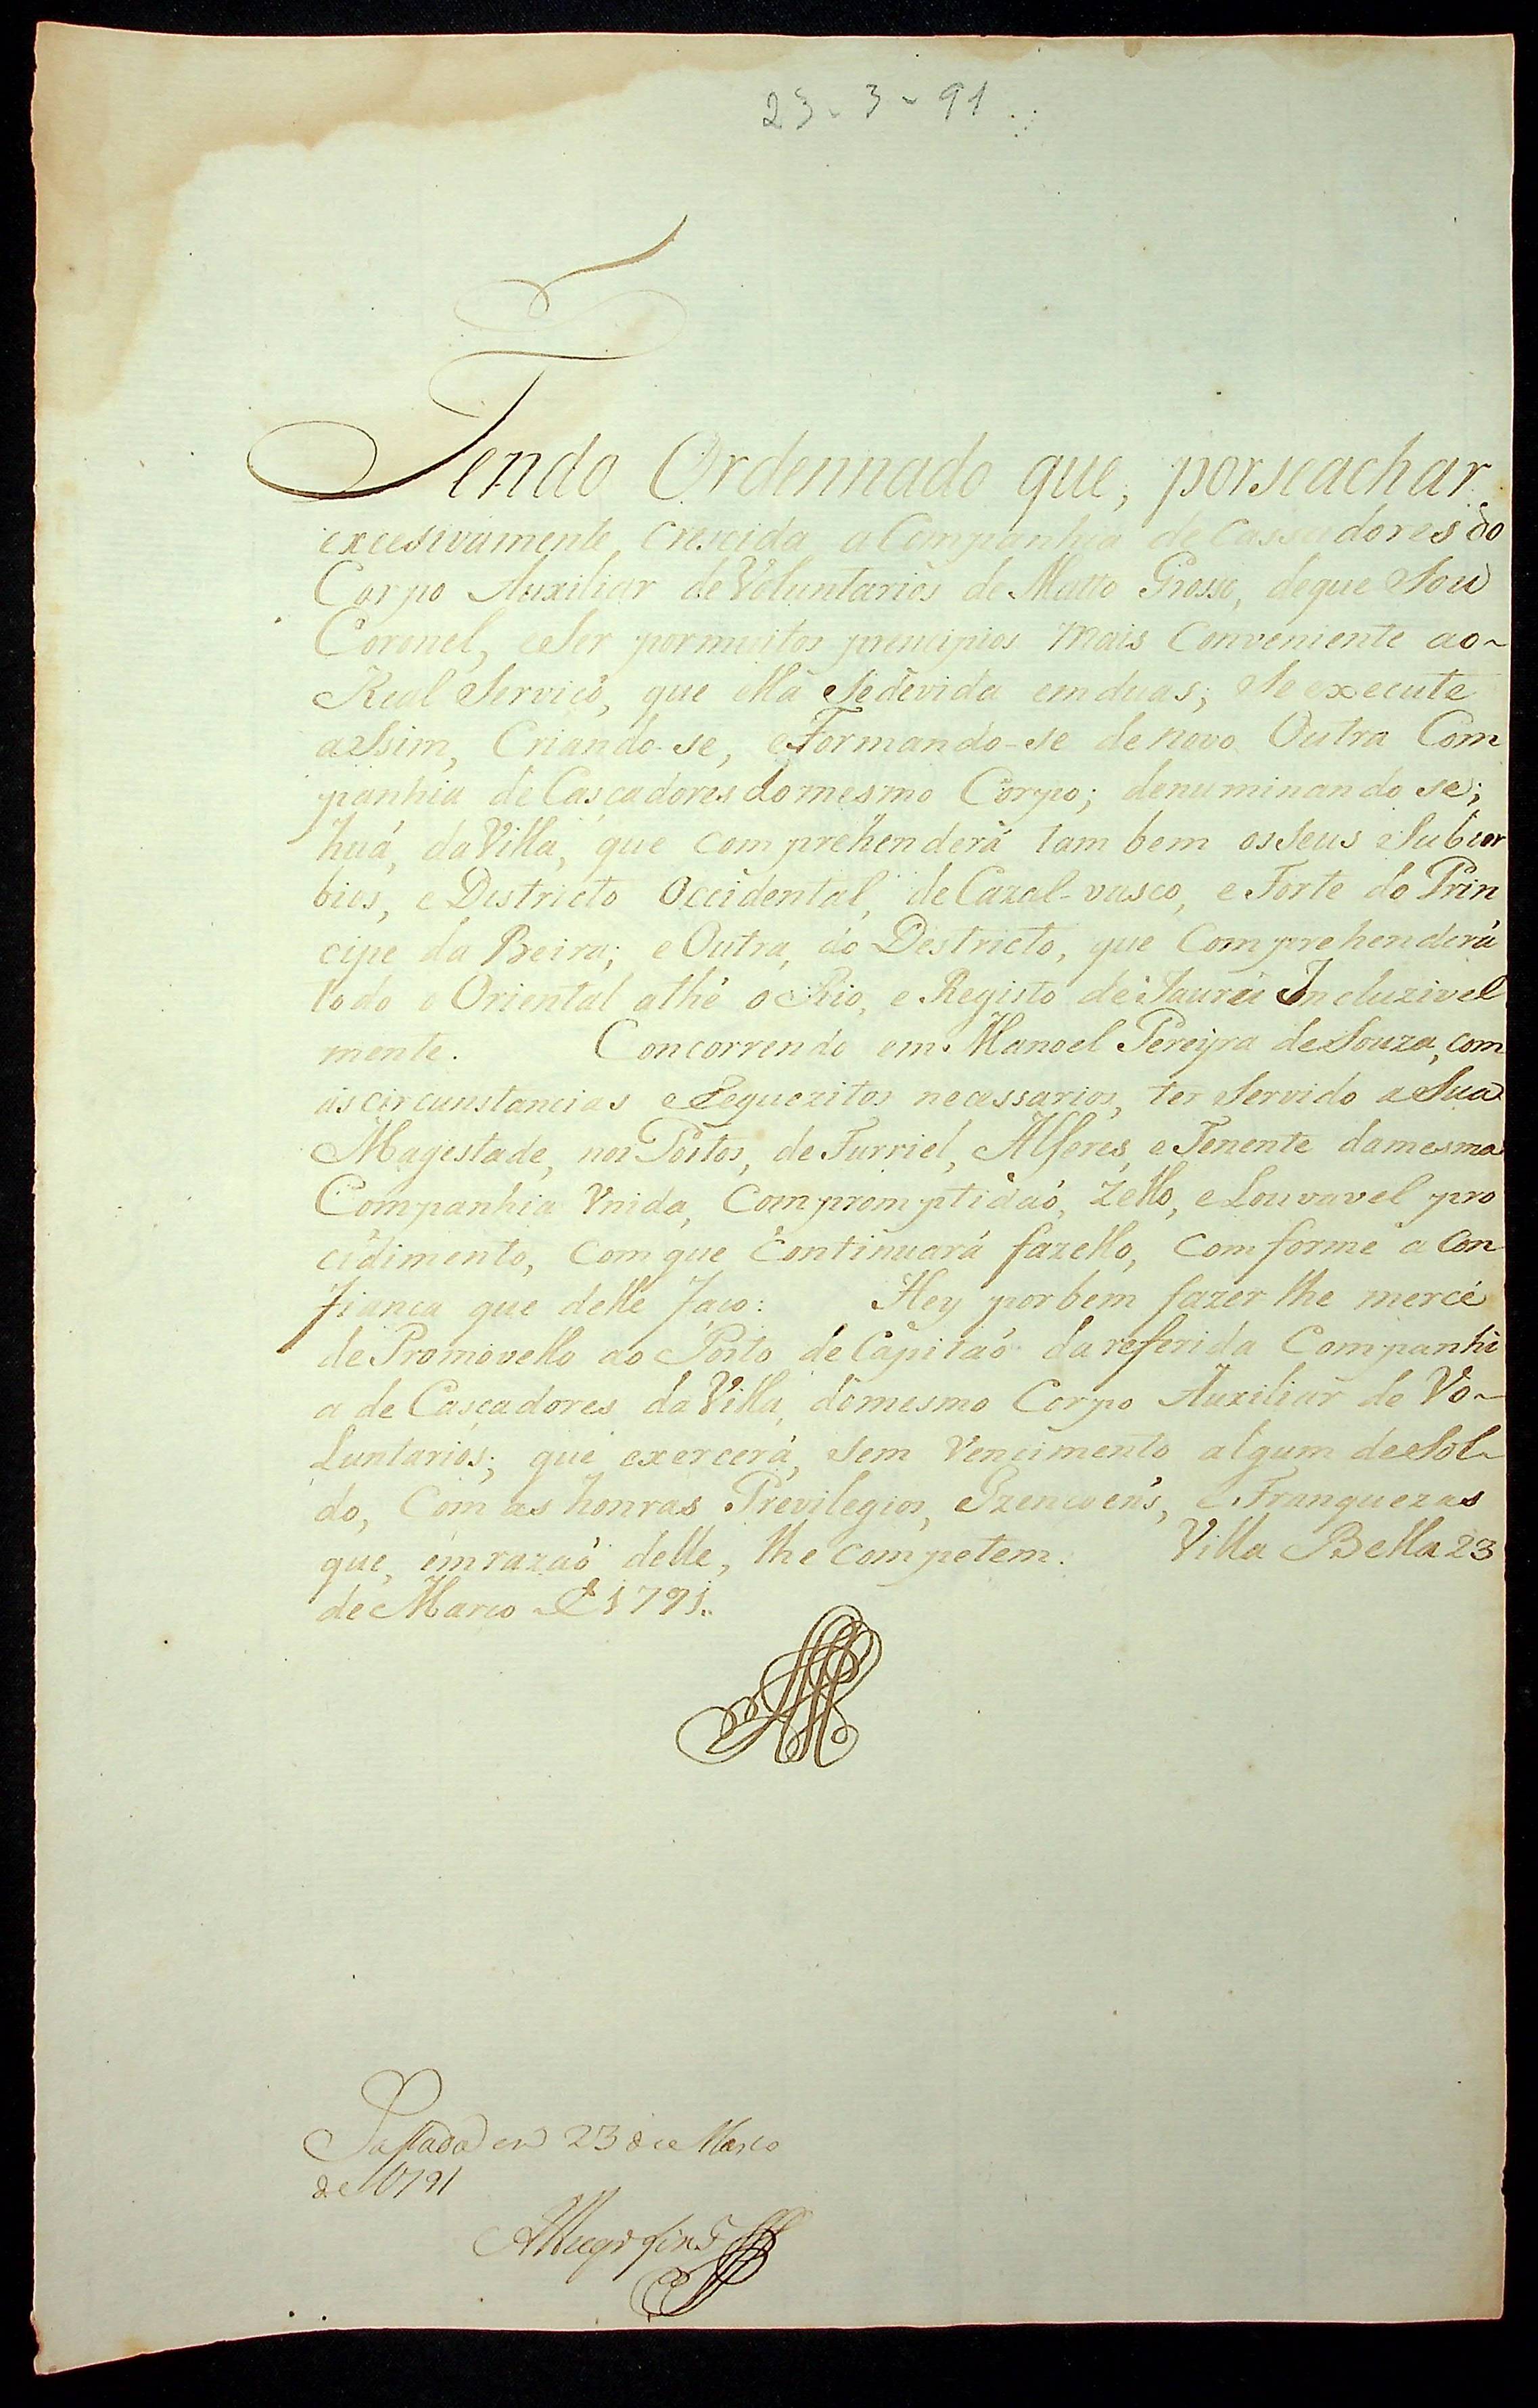 23-3-91
Tendo Ordennado que, porseachar
excesivamente crescida a Companhia de Cassadores do
Corpo Auxiliar de Voluntarios de Matto Grosso, deque Sou
Coronel, eSer pormuitos principios mais Conveniente ao~
Real Serviço, que ella Sedevida em duas; Se execute
assim, Criando-se, eFormando-se de novo Outra Com
panhia de Casçadores domesmo Corpo; denuminando se;
huá, da Villa, que comprehenderá tam bem os Seus Subur
bios, e Districto Occidental, de Cazal-vasco, e Forte do Prin
cipe da Beira; e Outra, do Destricto, que Comprehenderá
todo o Oriental athé o Rio, e Registo de Jaurú Incluzivel
mente. Concorrendo em Manoel Pereyra de Souza, com
as circunstancias e Requezitos necessarios, ter Servido a Sua
Magestade, nos Postos, de Furriel, Alferes, e Tenente damesma
Companhia Vnida, Com promptidaó, Zello, e Louvavel pro
cidimento, Com que Continuará fazello, Com forme a Con
fiança que delle faço: Hey porbem fazer lhe mercé
de Promovello ao Posto de Capitaó da referida Companhi
a de Casçadores da Villa, domesmo Corpo Auxiliar de Vo~
Luntarios; que exercerá, Sem Vencimento algum de Sol~
do, Com as honras Previlegios, Izencoens, e Franquezas
que, em razaó delle, lhe competem. Villa Bella 23
de Março de 1791.
Passada em 23 de Março
de 1791